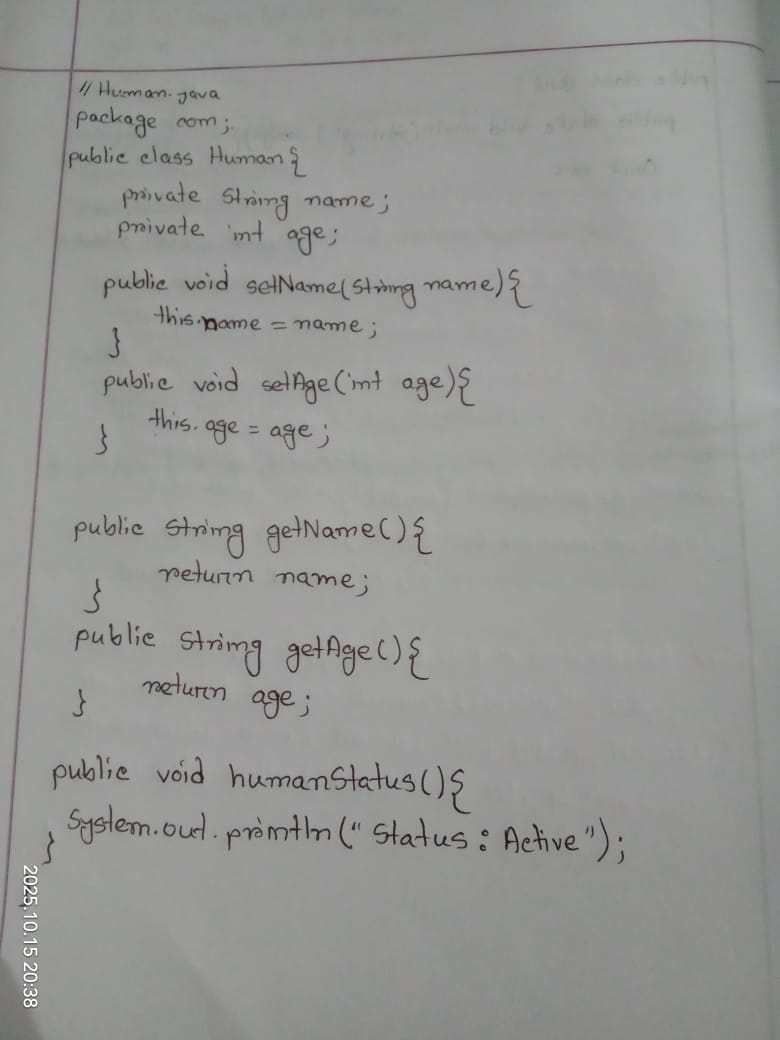 // Human.java
package com;
public class Human{
private String name;
private int age;
public void setName(String name){
this.name = name;
}
public void setAge(int age){
this.age = age;
}
public String getName(){
return name;
}
public String getAge(){
return age;
}
public void humanStatus(){
System.out.println("Status: Active");
}
2025.10.15 20:38